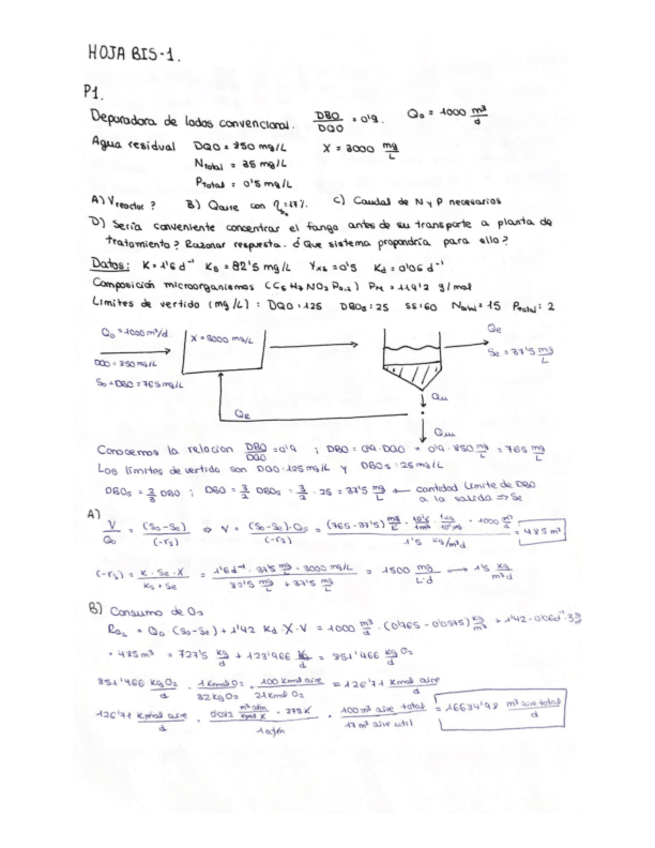 HOJA BIS-1.
P1.
Depuradora de lodos convencional. DBO/DQO = 0'9. Q₀ = 1000 m³/d
Agua residual DQO = 850 mg/L X = 3000 mg/L
Ntotal = 35 mg/L
Ptotal = 0'5 mg/L
A) Vreactor? B) Qaire con = 17%. C) Caudal de N y P necesarios
D) Sería conveniente concentrar el fango antes de su transporte a planta de
tratamiento? Razonar respuesta. ¿Que sistema propondría para ello?
Datos: K = 1'6 d⁻¹ Ks = 82'5 mg/L = 0'5 Kd = 0'06 d⁻¹
Composición microorganismos PM = 114'2 g/mol
Límites de vertido (mg/L): DQO = 125 DBO₅ = 25 SS = 60 Ntotal = 15 Ptotal = 2
Q₀ = 1000 m³/d
X = 3000 mg/L
Qe
DQO = 850 mg/L
Se = 37'5 mg/L
S₀ = DBO = 765 mg/L
Qu
Conocemos la relacion DBO/DQO = 0'9 ; DBO = 0'9 · DQO = 0'9 · 850 mg/L = 765 mg/L
Los límites de vertido son DQO = 125 mg/L y DBO₅ = 25 mg/L
DBO₅ = 2/3 DBO ; DBO = 3/2 DBO₅ = 3/2 · 25 = 37'5 mg/L ← cantidad límite de DBO
a la salida ⇒ Se
A)
V/Q₀ = (S₀-Se)/(-rs) ⇒ V = (S₀-Se)·Q₀/(-rs) = = 485 m³
(-rs) = K · Se · X/(Ks + Se) = = 1500 mg/L·d → 1'5 kg/m³d
B) Consumo de O₂
Ro₂ = Q₀ · (S₀-Se) + 1'42 Kd · X · V = 1000 m³/d · (0'765 - 0'0375) kg/m³ + 1'42 · 0'06 d⁻¹ ·
= 727'5 kg/d + = 851'466 kg O₂/d
851'466 kg O₂/d · 1 Kmol O₂/32 kg O₂ · 100 Kmol aire/21 Kmol O₂ = 126'71 Kmol aire/d
126'71 Kmol aire/d · 0'082 m³ atm/Kmol K · 273 K/1 atm · 100 m³ aire total/17 m³ aire util = m³ aire total/d